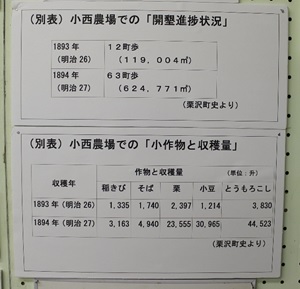 (別表) 小西農場での「開墾進捗状況」
1893年 12町歩
(明治26) (119,004㎡)
1894年 63町歩
(明治27) (624,771㎡)
(栗沢町史より)
(別表) 小西農場での「小作物と収穫量」
収穫年 作物と収穫量 (単位:升)
稲きび そば 粟 小豆 とうもろこし
1893年(明治26) 1,335 1,740 2,397 1,214 3,830
1894年(明治27) 3,163 4,940 23,555 30,965 44,523
(栗沢町史より)